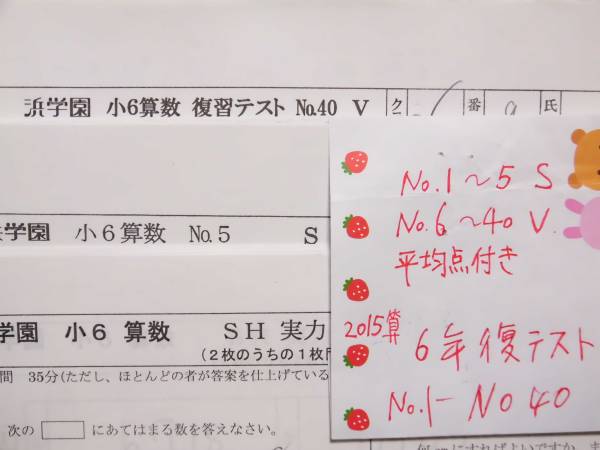 浜学園 小6算数 復習テスト No.40 V ク 番 氏
No.1～5 S
No.6～40 V
平均点付き
2015算
6年復テスト
No.1-No40
学園 小6算数 No.5 S
学園 小6 算数 SH 実力
(2枚のうちの1枚
間 35分(ただし、ほとんどの者が答案を仕上げている
次の□にあてはまる数を答えなさい。